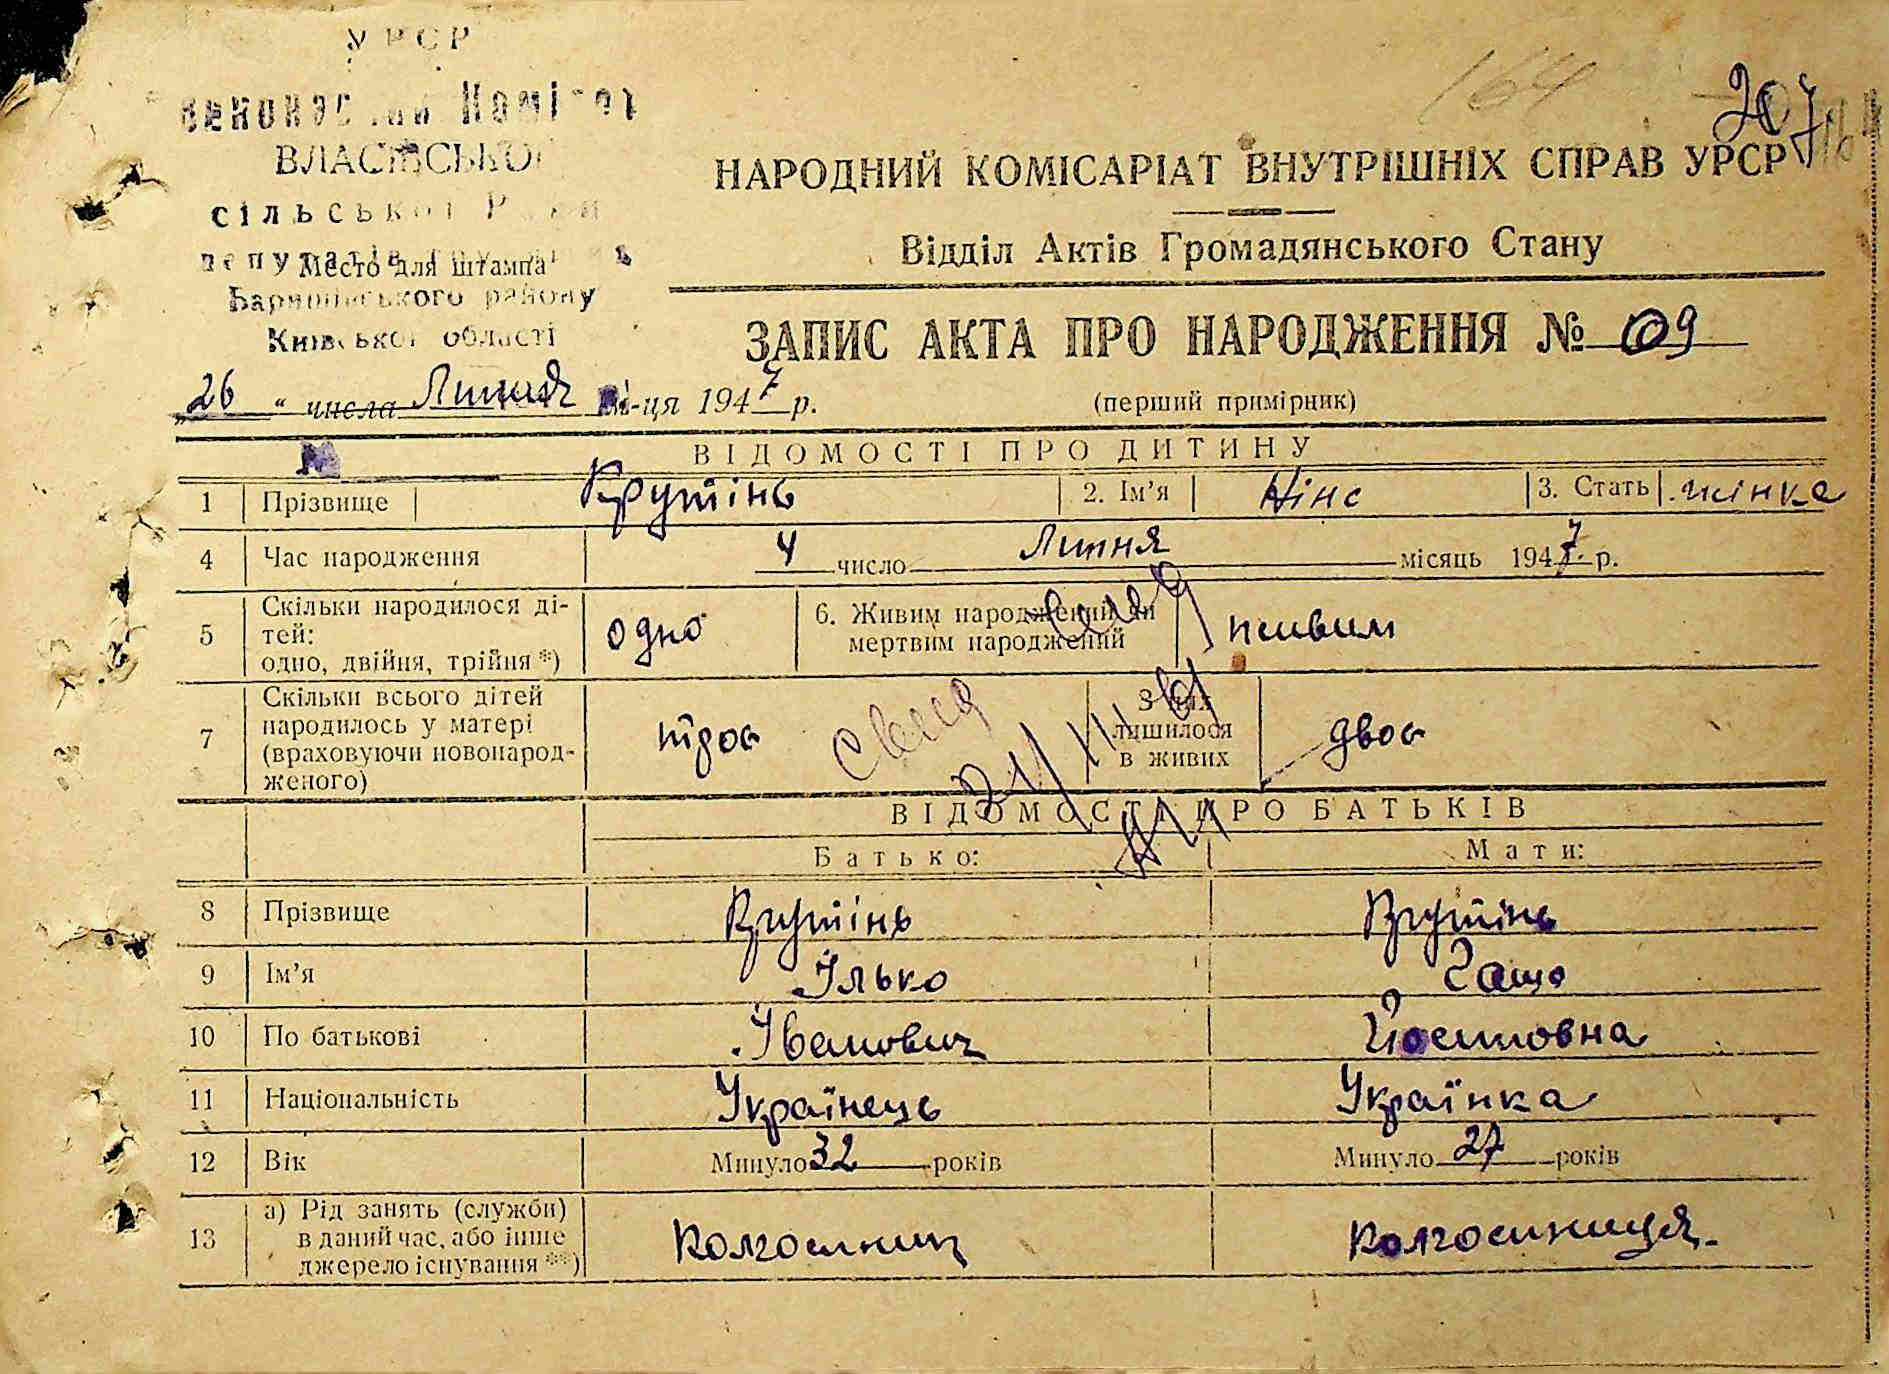 УРСР
Виконавчий Комітет
ВЛАСІВСЬКОЇ
сільської Ради
депутатів
Место для штампа
Баришівського району
Київської області
164
207
НАРОДНИЙ КОМІСАРІАТ ВНУТРІШНІХ СПРАВ УРСР
Відділ Актів Громадянського Стану
ЗАПИС АКТА ПРО НАРОДЖЕННЯ № 09
„26“ числа Липня мі-ця 1947 р.
(перший примірник)
ВІДОМОСТІ ПРО ДИТИНУ
1 Прізвище Крутінь 2. Ім’я Ніна 3. Стать жінка
4 Час народження 4 число Липня місяць 1947 р.
5 Скільки народилося дітей: одно, двійня, трійня *) одно 6. Живим народжений чи мертвим народжений живим
7 Скільки всього дітей народилось у матері (враховуючи новонародженого) троє З них лишилося в живих двоє
ВІДОМОСТІ ПРО БАТЬКІВ
Батько: Мати:
8 Прізвище Крутінь Крутінь
9 Ім’я Ілько
10 По батькові Іванович Йосиповна
11 Національність Українець Українка
12 Вік Минуло 32 років Минуло 27 років
13 а) Рід занять (служби) в даний час, або інше джерело існування **) Колгоспник Колгоспниця